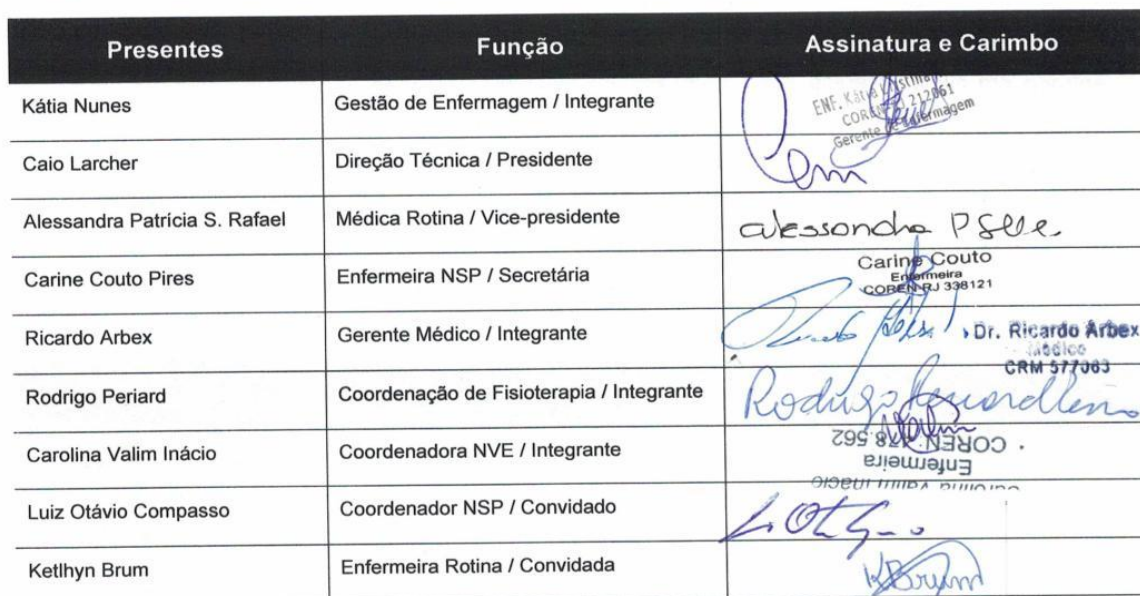 Presentes Função Assinatura e Carimbo
Kátia Nunes Gestão de Enfermagem / Integrante
ENF. Kátia
COREN 212061
Gerente de Enfermagem
Caio Larcher Direção Técnica / Presidente
Alessandra Patrícia S. Rafael Médica Rotina / Vice-presidente
Alessandra P
Carine Couto Pires Enfermeira NSP / Secretária
Carine Couto
Enfermeira
COREN-RJ 338121
Ricardo Arbex Gerente Médico / Integrante
Dr. Ricardo Arbex
Médico
CRM 577063
Rodrigo Periard Coordenação de Fisioterapia / Integrante
Rodrigo
Carolina Valim Inácio Coordenadora NVE / Integrante
Carolina Valim Inácio
Enfermeira
COREN
Luiz Otávio Compasso Coordenador NSP / Convidado
Ketlhyn Brum Enfermeira Rotina / Convidada
KBrum